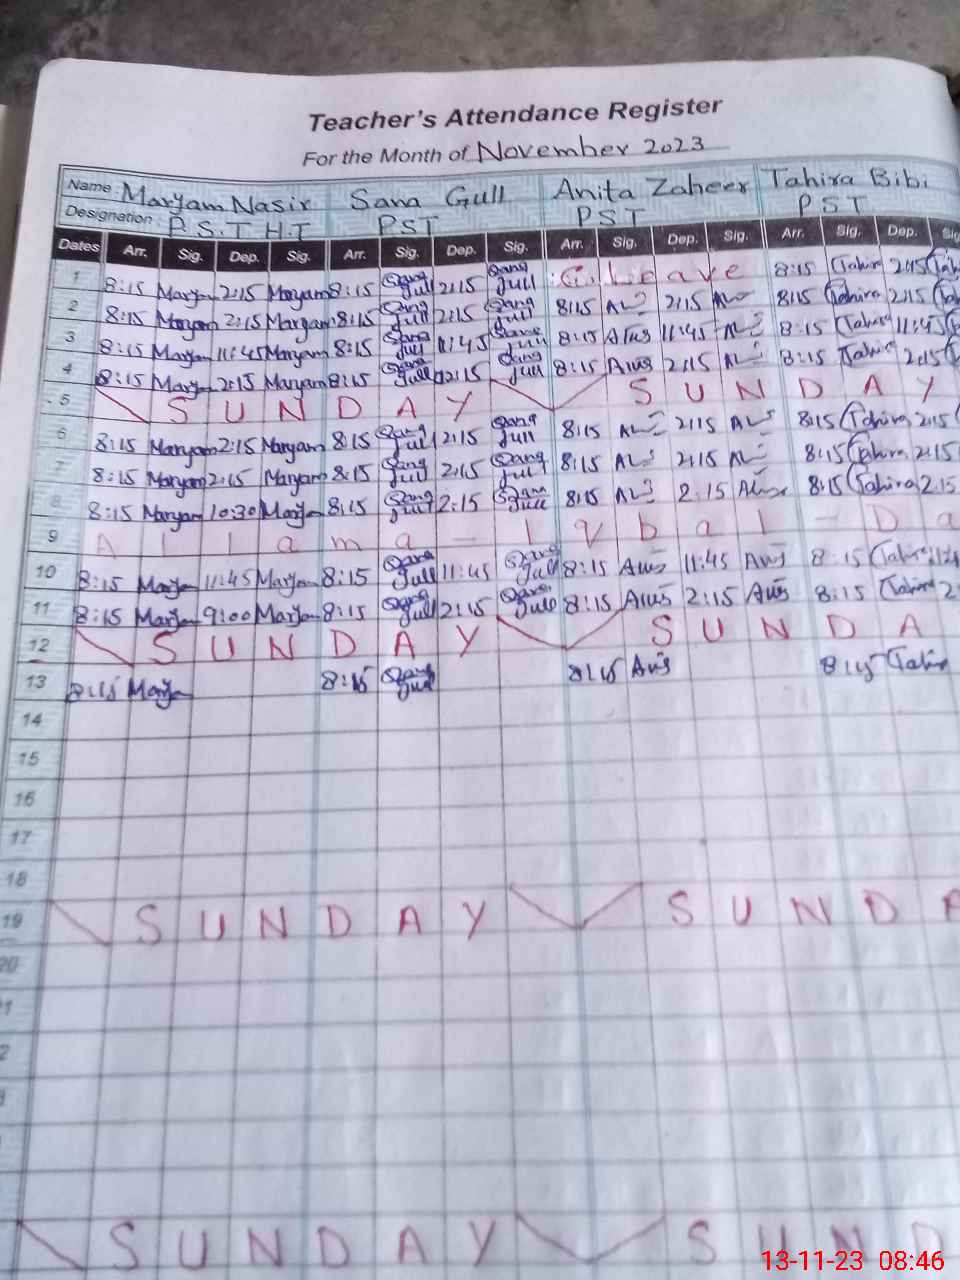 Teacher's Attendance Register
For the Month of November 2023
Name: Maryam Nasir Sana Gull Anita Zaheer Tahira Bibi
Designation: P.S.T H.T PST PST PST
Dates Arr. Sig. Dep. Sig. Arr. Sig. Dep. Sig. Arr. Sig. Dep. Sig. Arr. Sig. Dep. Sig
1 8:15 Maryam 2:15 Maryam 8:15 Sana Gull 2:15 Sana Gull C. Leave 8:15 Tahira 2:15
2 8:15 Maryam 2:15 Maryam 8:15 Sana Gull 2:15 Sana Gull 8:15 2:15 8:15 Tahira 2:15
3 8:15 Maryam 11:45 Maryam 8:15 Sana Gull 11:45 Sana Gull 8:15 11:45 8:15 Tahira 11:45
4 8:15 Maryam 2:15 Maryam 8:15 Sana Gull 2:15 Sana Gull 8:15 2:15 8:15 Tahira 2:15
5 SUNDAY SUNDAY
6 8:15 Maryam 2:15 Maryam 8:15 Sana Gull 2:15 Sana Gull 8:15 2:15 8:15 Tahira 2:15
7 8:15 Maryam 2:15 Maryam 8:15 Sana Gull 2:15 Sana Gull 8:15 2:15 8:15 Tahira 2:15
8 8:15 Maryam 10:30 Maryam 8:15 Sana Gull 2:15 Sana Gull 8:15 2:15 8:15 Tahira 2:15
9 Allama - Iqbal - Da
10 8:15 Maryam 11:45 Maryam 8:15 Sana Gull 11:45 Sana Gull 8:15 11:45 8:15 Tahira
11 8:15 Maryam 9:00 Maryam 8:15 Sana Gull 2:15 Sana Gull 8:15 2:15 8:15 Tahira 2
12 SUNDAY SUNDA
13 8:15 Maryam 8:15 Sana Gull 8:15 8:15 Tahira
14
15
16
17
18
19 SUNDAY SUNDA
20
1
2
SUNDAY SUND
13-11-23 08:46